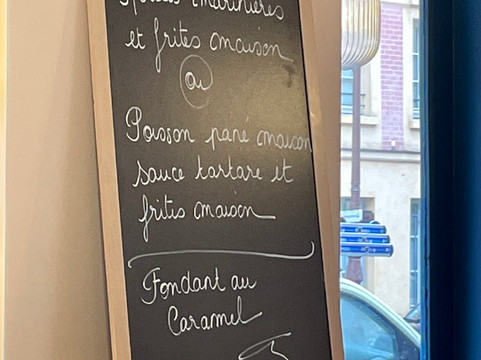 marinières
et frites maison
ou
Poisson pané maison
sauce tartare et
frites maison
Fondant au
Caramel